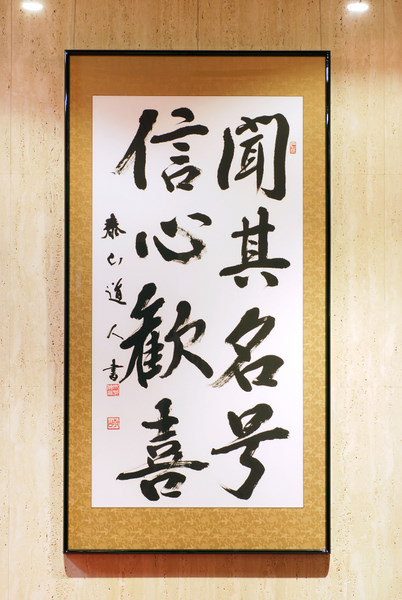 聞其名号
信心歓喜
泰山道人書